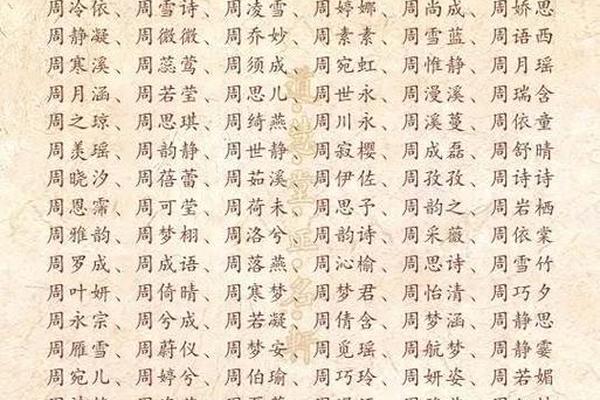 周冷依、周雪诗、周凌雪、周婷娜、周尚成、周娇思
周静凝、周微微、周乔妙、周素素、周雪蓝、周语西
周寒溪、周蕊莺、周须成、周宛虹、周惟静、周月瑶
周月涵、周若莹、周思儿、周世永、周漫溪、周瑞含
周之琼、周思琪、周绮燕、周川永、周溪蔓、周依童
周羨瑶、周韵静、周世静、周寂樱、周成磊、周舒晴
周晓汐、周蓓蕾、周茹溪、周伊佐、周孜孜、周诗诗
周恩霈、周可莹、周荷未、周思予、周韵之、周岩栖
周雅韵、周梦栩、周洛兮、周韵诗、周采薇、周依棠
周罗成、周成语、周落燕、周沁榆、周思诗、周雪竹
周叶妍、周倚晴、周寒梦、周梦君、周怡清、周巧夕
周永宗、周兮成、周若凝、周倩含、周梦涵、周静思
周雁雪、周蔚仪、周梦安、周觅瑶、周航梦、周静霎
周宛儿、周婷兮、周伯瑜、周巧玲、周妍姿、周若媚